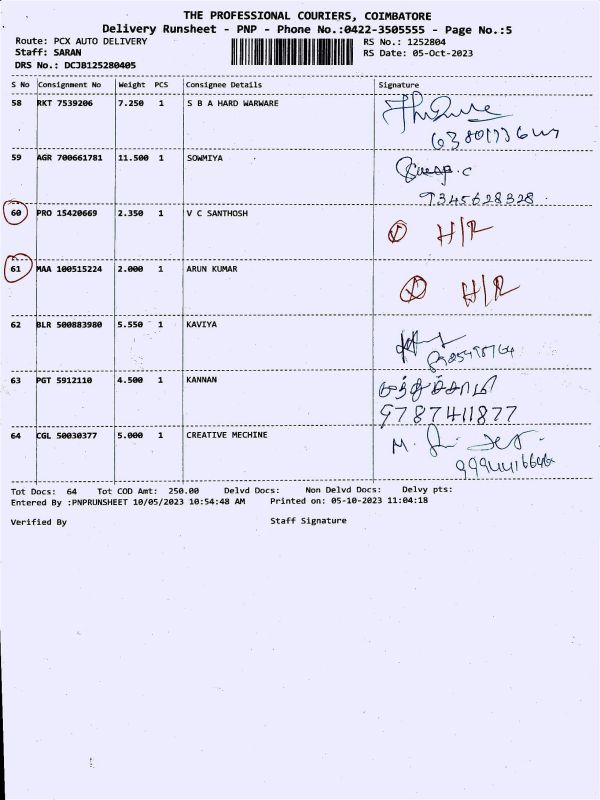 THE PROFESSIONAL COURIERS, COIMBATORE
Delivery Runsheet - PNP - Phone No.:0422-3505555 - Page No.:5
Route: PCX AUTO DELIVERY RS No.: 1252804
Staff: SARAN RS Date: 05-Oct-2023
DRS No.: DCJB125280405
S No Consignment No Weight PCS Consignee Details Signature
58 RKT 7539206 7.250 1 S B A HARD WARWARE
59 AGR 700661781 11.500 1 SOWMIYA
9345628328
60 PRO 15420669 2.350 1 V C SANTHOSH
H/R
61 MAA 100515224 2.000 1 ARUN KUMAR
H/R
62 BLR 500883980 5.550 1 KAVIYA
63 PGT 5912110 4.500 1 KANNAN
9787411877
64 CGL 50030377 5.000 1 CREATIVE MECHINE
Tot Docs: 64 Tot COD Amt: 250.00 Delvd Docs: Non Delvd Docs: Delvy pts:
Entered By :PNPRUNSHEET 10/05/2023 10:54:48 AM Printed on: 05-10-2023 11:04:18
Verified By Staff Signature